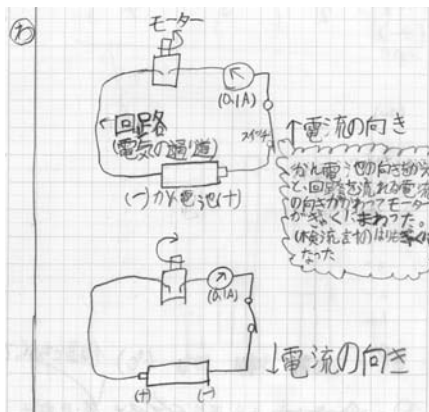 わ
モーター
(0.1A)
回路
(電気の通り道)
スイッチ
↑電流の向き
(-)かん電池(+)
かん電池の向きがかわる
と、回路を流れる電流
の向きがかわってモーター
がぎゃくにまわった。
(検流計)のはりも
なった
(0.1A)
(+)
(-)
↓電流の向き